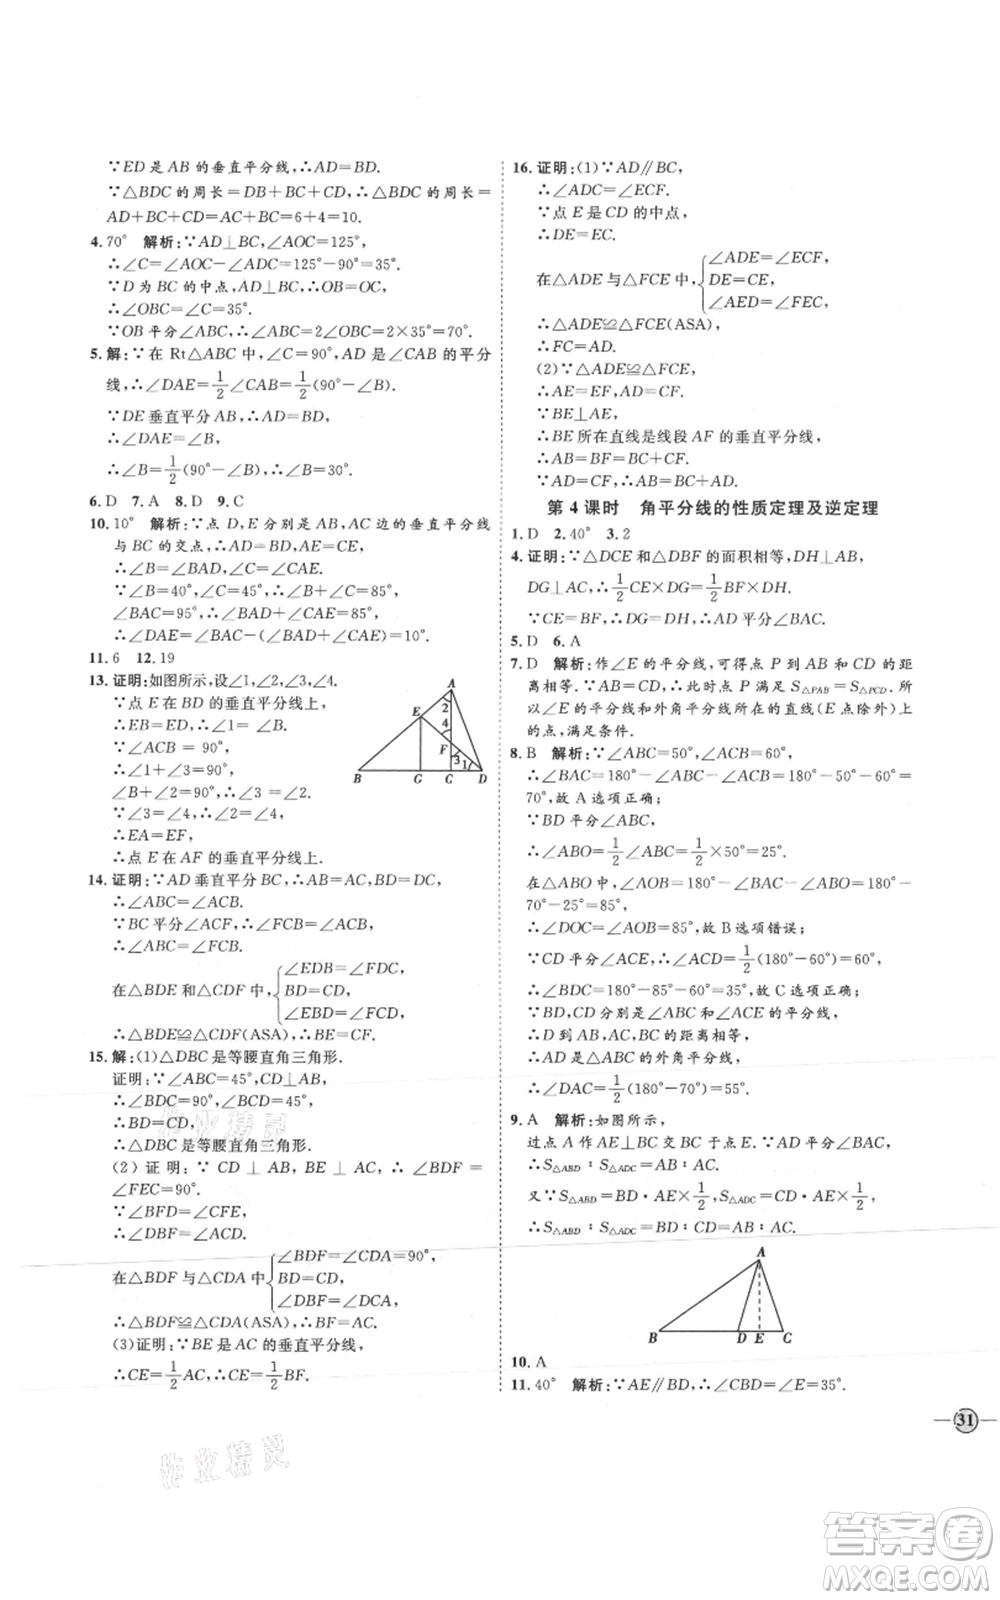 ∵ED是AB的垂直平分线,∴AD=BD.
∵△BDC的周长=DB+BC+CD,∴△BDC的周长=
AD+BC+CD=AC+BC=6+4=10.
4.70° 解析:∵AD⊥BC,∠AOC=125°,
∴∠C=∠AOC-∠ADC=125°-90°=35°.
∵D为BC的中点,AD⊥BC,∴OB=OC,
∴∠OBC=∠C=35°.
∵OB平分∠ABC,∴∠ABC=2∠OBC=2×35°=70°.
5.解:∵在Rt△ABC中,∠C=90°,AD是∠CAB的平分
线,∴∠DAE=1/2∠CAB=1/2(90°-∠B).
∵DE垂直平分AB,∴AD=BD,
∴∠DAE=∠B,
∴∠B=1/2(90°-∠B),∴∠B=30°.
6.D 7.A 8.D 9.C
10.10° 解析:∵点D,E分别是AB,AC边的垂直平分线
与BC的交点,∴AD=BD,AE=CE,
∴∠B=∠BAD,∠C=∠CAE.
∵∠B=40°,∠C=45°,∴∠B+∠C=85°,
∠BAC=95°,∴∠BAD+∠CAE=85°,
∴∠DAE=∠BAC-(∠BAD+∠CAE)=10°.
11.6 12.19
13.证明:如图所示,设∠1,∠2,∠3,∠4.
∵点E在BD的垂直平分线上,
∴EB=ED,∴∠1=∠B.
∵∠ACB=90°,
∴∠1+∠3=90°,
∠B+∠2=90°,∴∠2=∠3.
∵∠3=∠4,∴∠4=∠2,
∴EA=EF,
∴点E在AF的垂直平分线上.
A
2
E
4
F
3
1
B
G
C
D
14.证明:∵AD垂直平分BC,∴AB=AC,BD=DC,
∴∠ABC=∠ACB.
∵BC平分∠ACF,∴∠FCB=∠ACB,
∴∠ABC=∠FCB.
在△BDE和△CDF中,{∠EDB=∠FDC,
BD=CD,
∠EBD=∠FCD,
∴△BDE≌△CDF(ASA),∴BE=CF.
15.解:(1)△DBC是等腰直角三角形.
证明:∵∠ABC=45°,CD⊥AB,
∴∠BDC=90°,∠BCD=45°,
∴BD=CD,
∴△DBC是等腰直角三角形.
(2)证明:∵CD⊥AB,BE⊥AC,∴∠BDC=
∠FEC=90°.
∵∠BFD=∠CFE,
∴∠DBF=∠ACD.
在△BDF与△CDA中{∠BDF=∠CDA=90°,
BD=CD,
∠DBF=∠DCA,
∴△BDF≌△CDA(ASA),∴BF=AC.
(3)证明:∵BE是AC的垂直平分线,
∴CE=1/2AC,∴CE=1/2BF.
16.证明:(1)∵AD∥BC,
∴∠ADC=∠ECF.
∵点E是CD的中点,
∴DE=EC.
在△ADE与△FCE中,{∠ADE=∠ECF,
DE=CE,
∠AED=∠FEC,
∴△ADE≌△FCE(ASA),
∴FC=AD.
(2)∵△ADE≌△FCE,
∴AE=EF,AD=CF.
∵BE⊥AE,
∴BE所在直线是线段AF的垂直平分线,
∴AB=BF=BC+CF.
∵AD=CF,∴AB=BC+AD.
第4课时 角平分线的性质定理及逆定理
1.D 2.40° 3.2
4.证明:∵△DCE和△DBF的面积相等,DH⊥AB,
DG⊥AC,∴1/2CE×DG=1/2BF×DH.
∵CE=BF,∴DG=DH,∴AD平分∠BAC.
5.D 6.A
7.D 解析:作∠E的平分线,可得点P到AB和CD的距
离相等.∵AB=CD,∴此时点P满足S△PAB=S△PCD.所
以∠E的平分线和外角平分线所在的直线(E点除外)上的
点,满足条件.
8.B 解析:∵∠ABC=50°,∠ACB=60°,
∴∠BAC=180°-∠ABC-∠ACB=180°-50°-60°=
70°,故A选项正确;
∵BD平分∠ABC,
∴∠ABO=1/2∠ABC=1/2×50°=25°.
在△ABO中,∠AOB=180°-∠BAC-∠ABO=180°-
70°-25°=85°,
∴∠DOC=∠AOB=85°,故B选项错误;
∵CD平分∠ACE,∴∠ACD=1/2(180°-60°)=60°,
∴∠BDC=180°-85°-60°=35°,故C选项正确;
∵BD,CD分别是∠ABC和∠ACE的平分线,
∴D到AB,AC,BC的距离相等,
∴AD是△ABC的外角平分线,
∴∠DAC=1/2(180°-70°)=55°.
9.A 解析:如图所示,
过点A作AE⊥BC交BC于点E.∵AD平分∠BAC,
∴S△ABD∶S△ADC=AB∶AC.
又∵S△ABD=BD·AE×1/2,S△ADC=CD·AE×1/2,
∴S△ABD∶S△ADC=BD∶CD=AB∶AC.
A
B
D
E
C
10.A
11.40° 解析:∵AE∥BD,∴∠CBD=∠E=35°.
31
作业精灵
作业精灵
答案卷
MXQE.COM